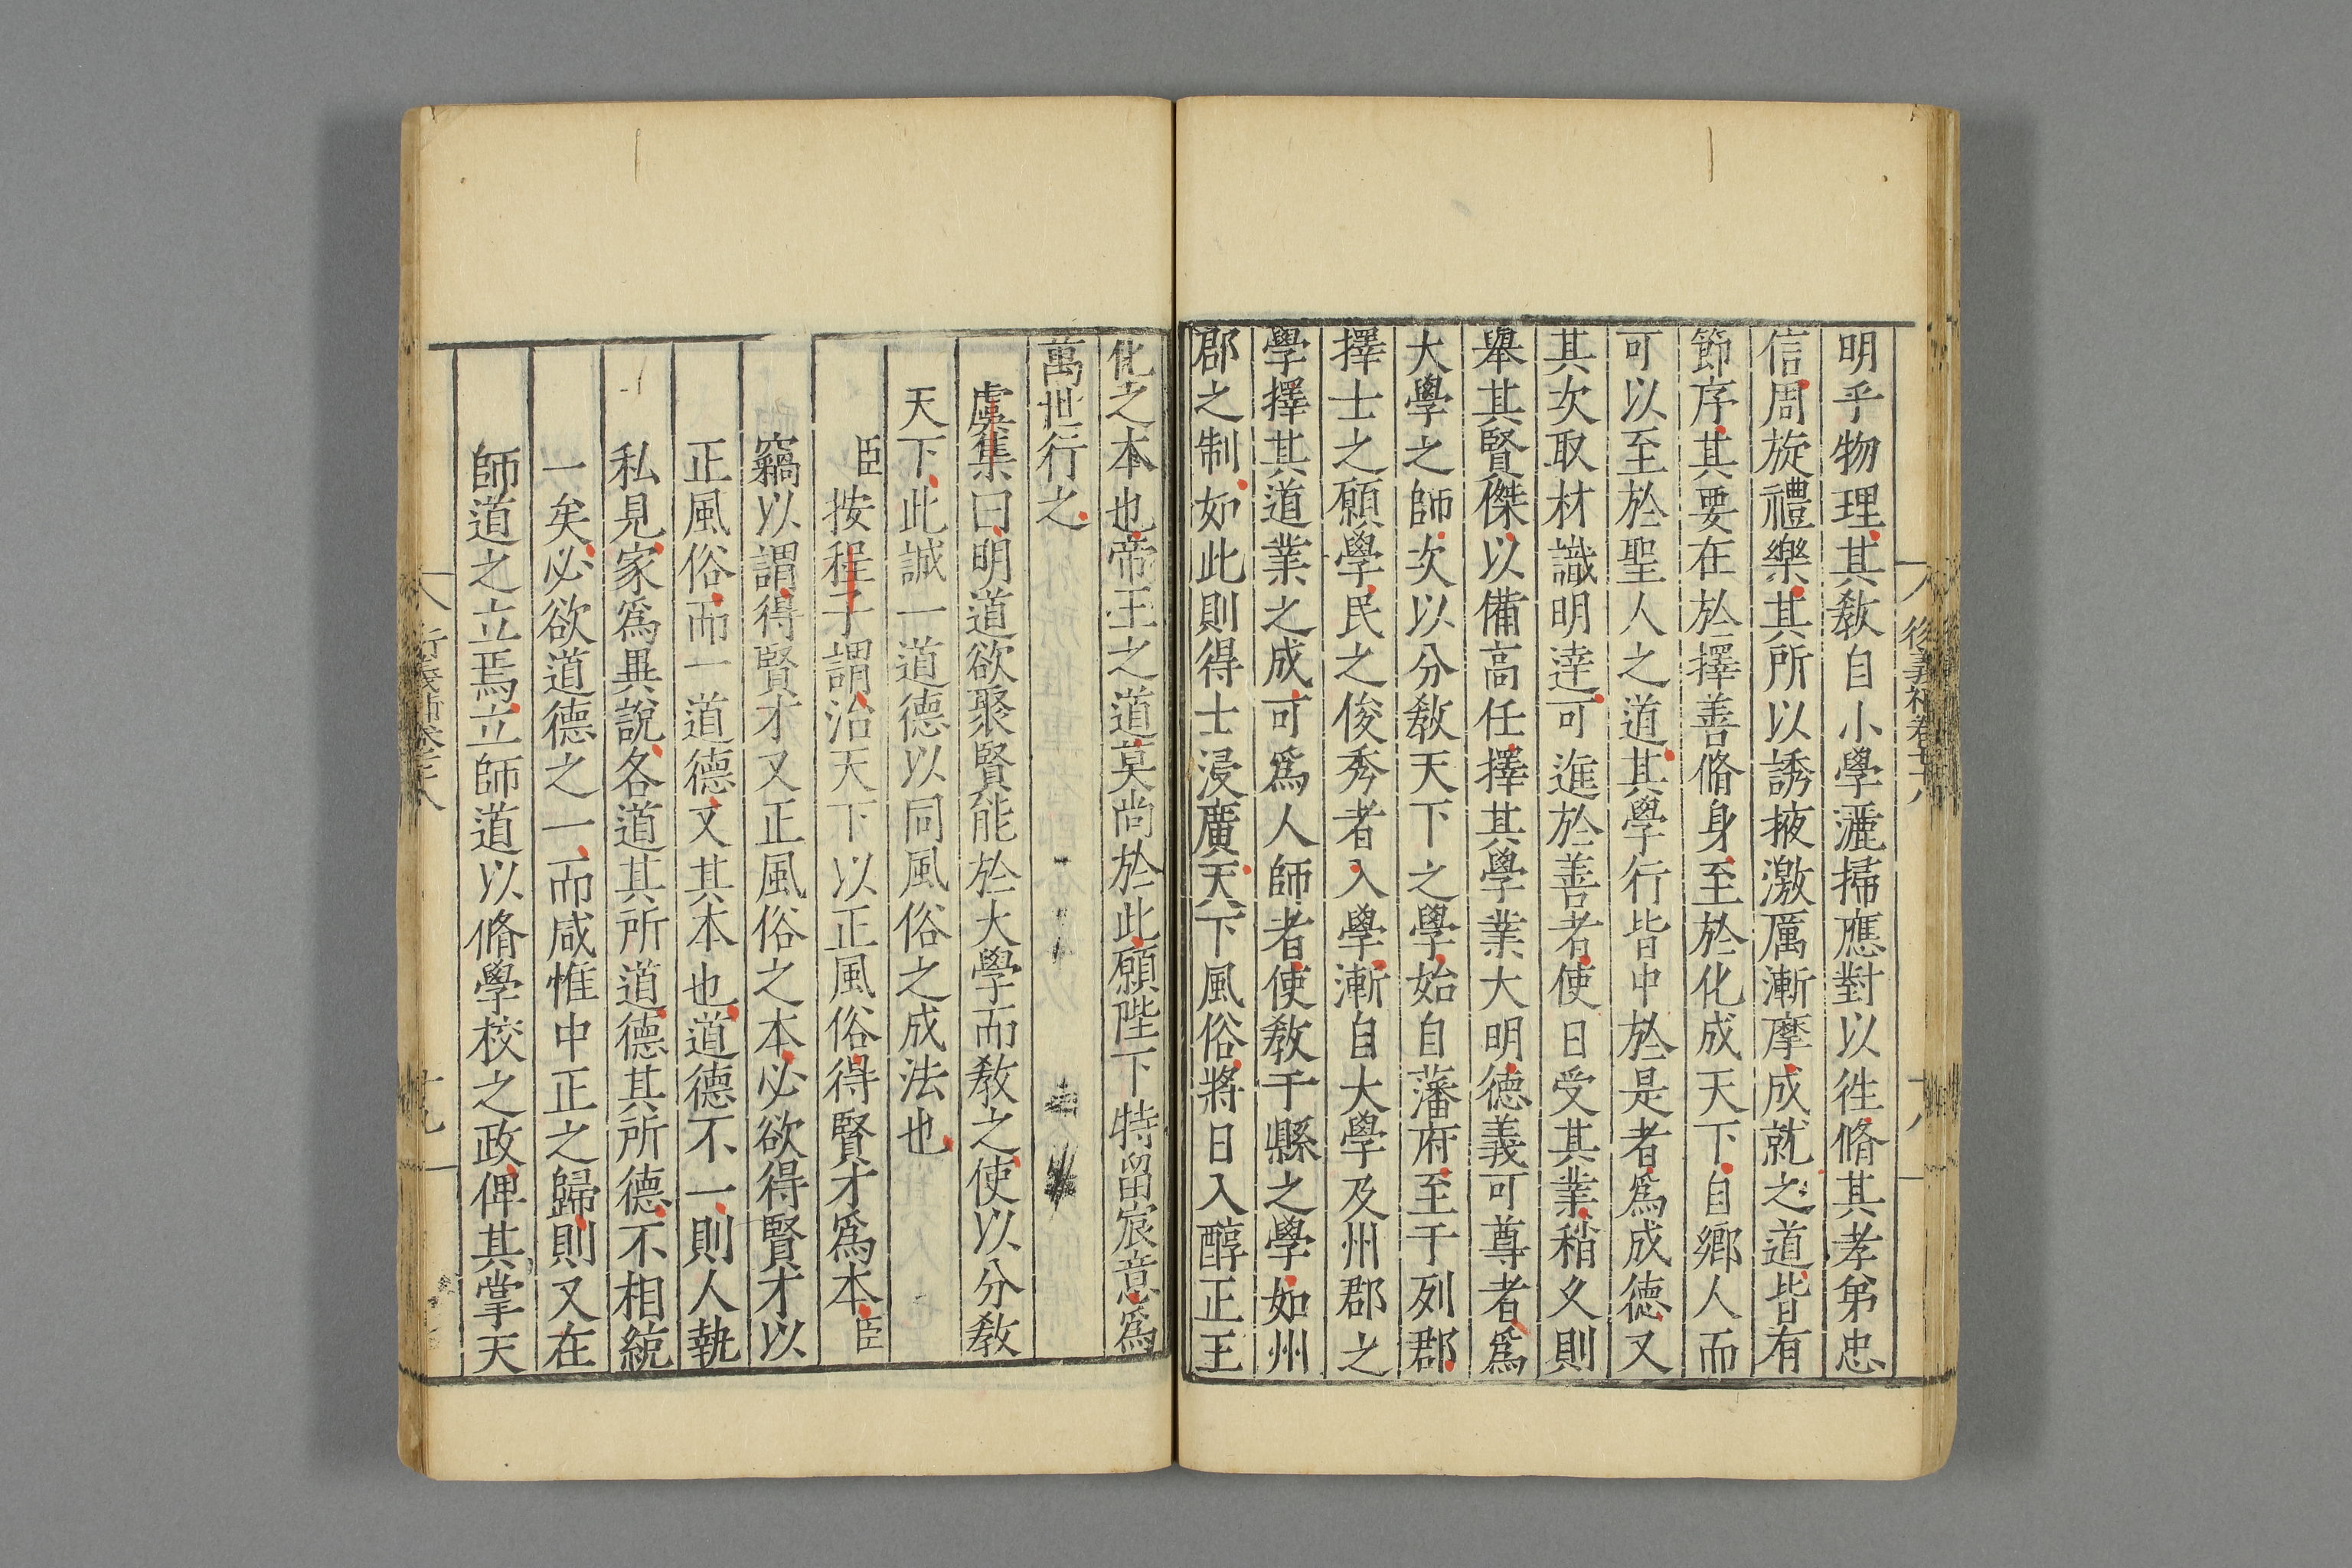 明乎物理其敎自小學灑掃應對以徃脩其孝弟忠
信周旋禮樂其所以誘掖激厲漸摩成就之道皆有
節序其要在於擇善脩身至於化成天下自鄉人而
可以至於聖人之道其學行皆中於是者爲成德又
其次取材識明達可進於善者使日受其業稍久則
舉其賢傑以備高任擇其學業大明德義可尊者爲
大學之師次以分敎天下之學始自藩府至于列郡
擇士之願學民之俊秀者入學漸自大學及州郡之
學擇其道業之成可爲人師者使敎于縣之學如州
郡之制如此則得士浸廣天下風俗將日入醇正王
化之本也帝王之道莫尚於此願陛下特留宸意爲
萬世行之
虞集曰明道欲聚賢能於大學而敎之使以分敎
天下此誠一道德以同風俗之成法也
臣按程子謂治天下以正風俗得賢才爲本臣
竊以謂得賢才又正風俗之本必欲得賢才以
正風俗而一道德又其本也道德不一則人執
私見家爲異說各道其所道德其所德不相統
一矣必欲道德之一而咸惟中正之歸則又在
師道之立焉立師道以脩學校之政俾其掌天